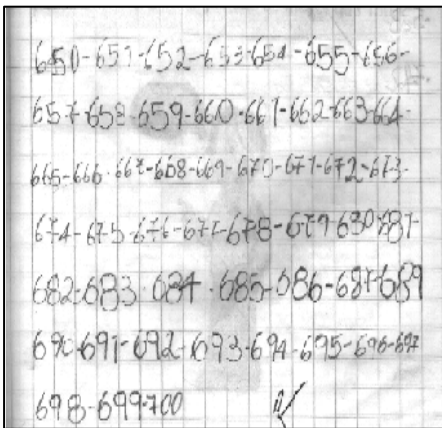 650-651-652-653-654-655-656-
657-658-659-660-661-662-663-664-
665-666-667-668-669-670-671-672-673-
674-675-676-677-678-679-680-681-
682-683-684-685-686-687-689
690-691-692-693-694-695-696-697
698-699-700